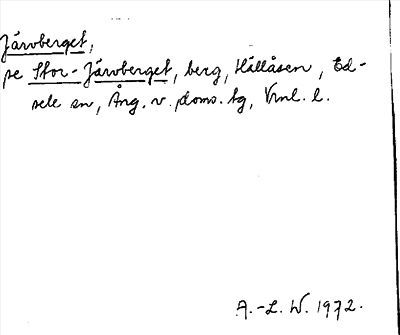 Järvberget,
se Stor-Järvberget, berg, Hållåsen, Ed-
sele sn, Ång. v. doms. tg, Vrnl. l.
A.-L. W. 1972.